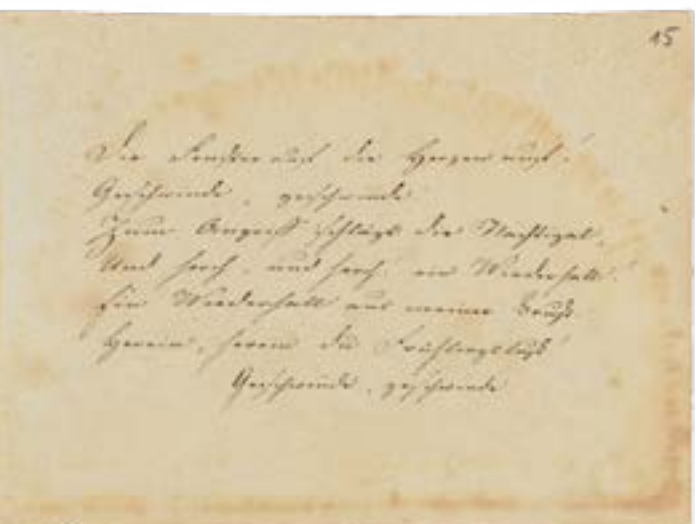 15
Die Fenster auf! die Herzen auf!
Geschwinde, geschwinde
Zum Angriff schlägt die Nachtigal,
Und horch, und horch! ein Wiederhall!
Ein Wiederhall aus meiner Brust
Herein, herein du Frühlingslust!
Geschwinde, geschwinde